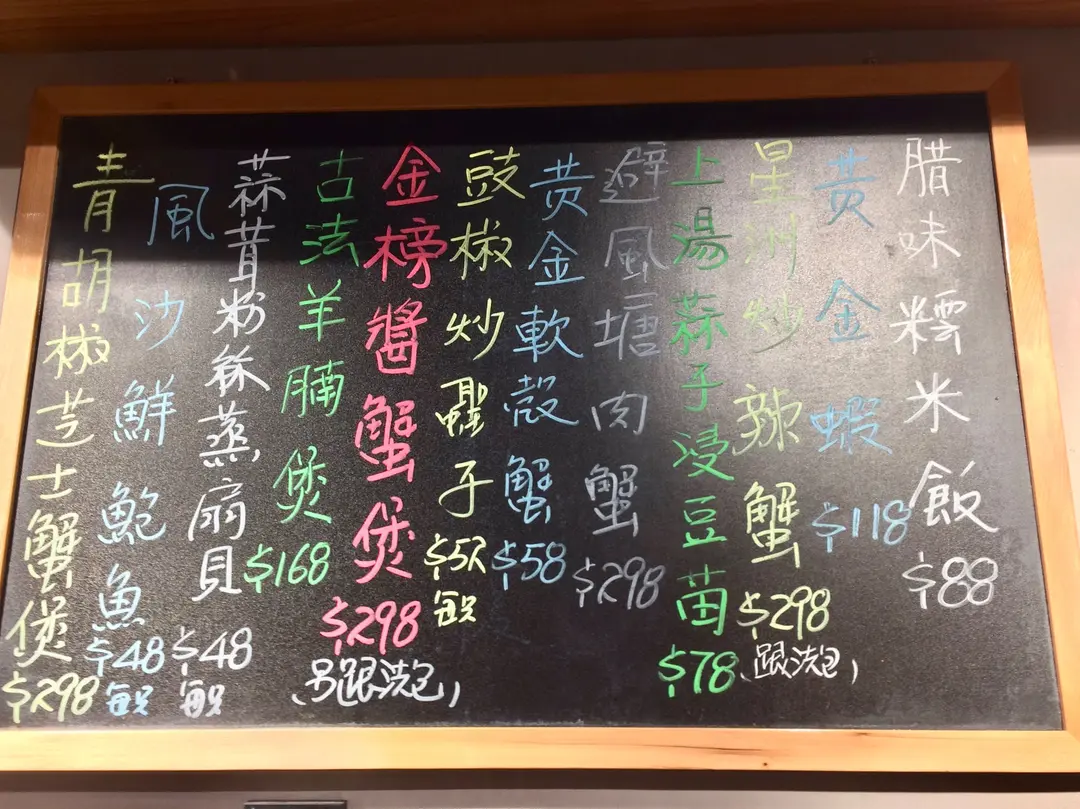 腊味糯米飯
$88
黄金蝦
$118
星洲炒辣蟹
$298
上湯蒜子浸豆苗
$78
避風塘肉蟹
$298
黄金軟殼蟹
$58
豉椒炒蟶子
$52
每只
金榜醬蟹煲
$298
古法羊腩煲
$168
蒜茸粉絲蒸扇貝
$48
每只
風沙鮮鮑魚
$48
每只
青胡椒芝士蟹煲
$298